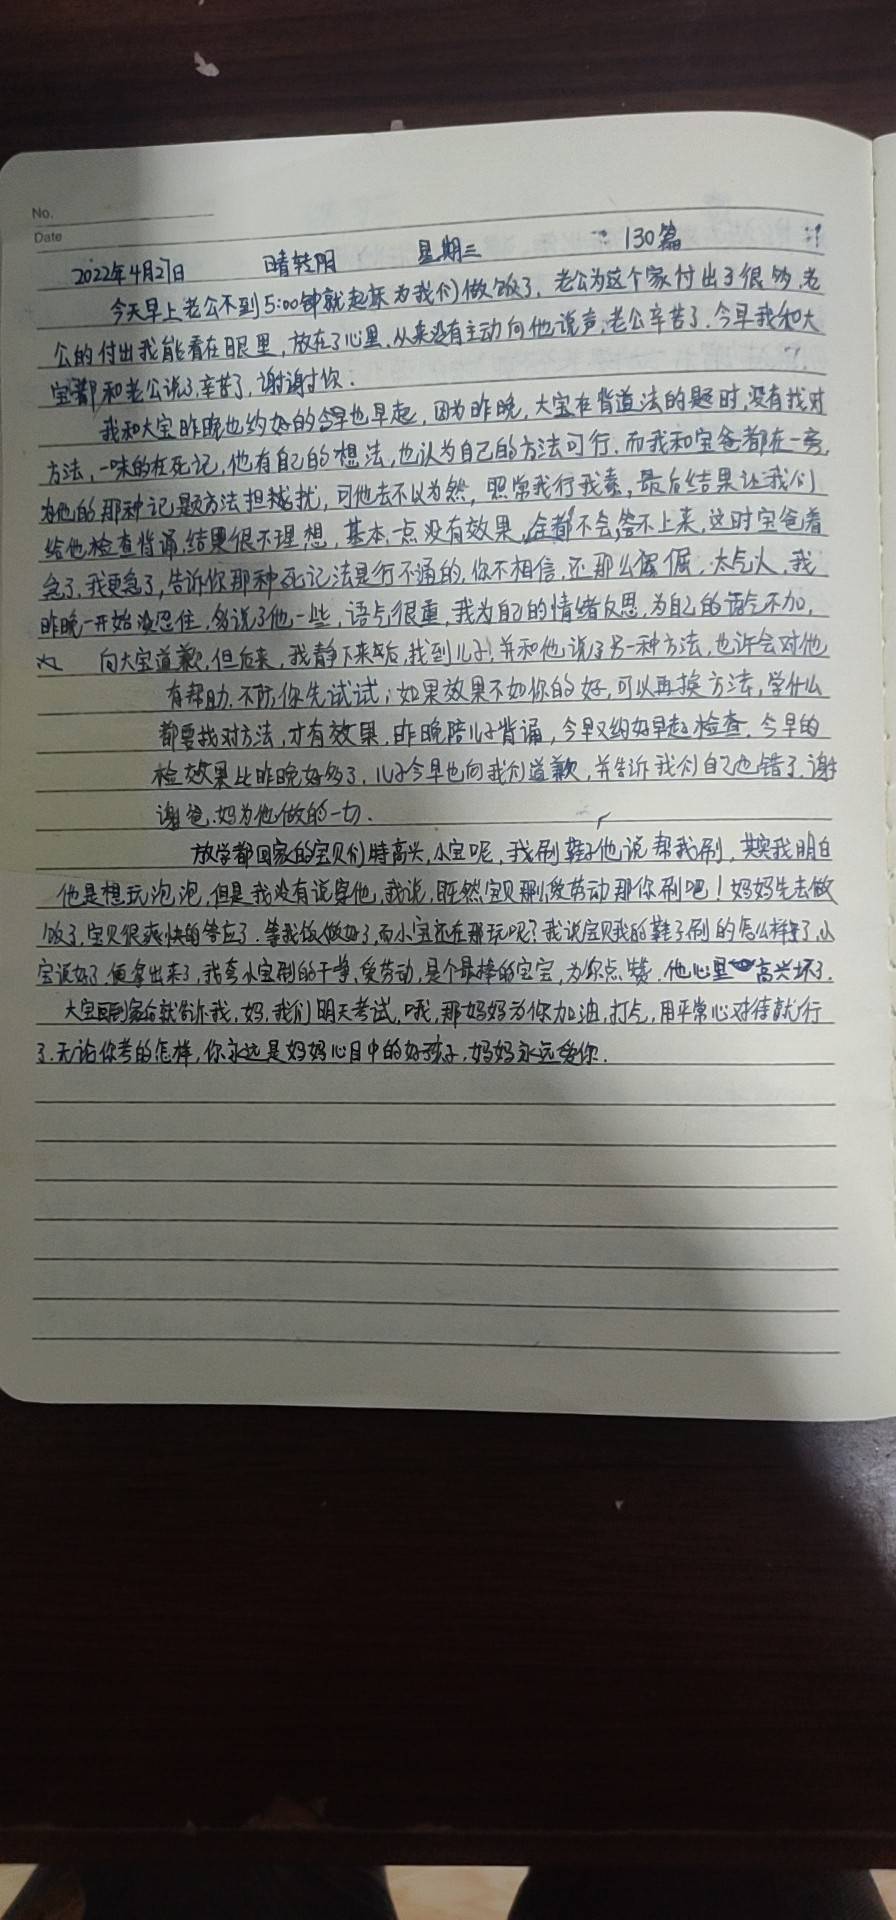 No.
Date
2022年4月27日 晴转阴 星期三 130篇
今天早上老公不到5:00钟就起床为我们做饭了,老公为这个家付出了很多,老
公的付出我能看在眼里,放在了心里,从来没有主动向他说声,老公辛苦了.今早我和大
宝都和老公说了,辛苦了,谢谢你.
我和大宝昨晚也约好的今早也早起,因为昨晚,大宝在背道法的题时,没有找对
方法,一味的在死记,他有自己的想法,也认为自己的方法可行.而我和宝爸都在一旁,
为他的那种记题方法担扰,可他去不以为然,照常我行我素,最后结果让我们
给他检查背诵,结果很不理想,基本一点没有效果,全都不会,答不上来,这时宝爸着
急了,我更急了,告诉你那种死记法是行不通的,你不相信,还那么倔倔,太气人,我
昨晚一开始没忍住,多说了他一些,语气很重,我为自己的情绪反思,为自己的语气不加,
向大宝道歉,但后来,我静下来以后,找到儿子,并和他说了另一种方法,也许会对他
有帮助.不防你先试试;如果效果不如你的好,可以再换方法,学什么
都要找对方法,才有效果.昨晚陪儿子背诵,今早又约好早起检查.今早的
检效果比昨晚好多了.儿子今早也向我们道歉,并告诉我们自己也错了.谢
谢爸.妈为他做的一切.
放学都回家的宝贝们特高兴,小宝呢,我刷鞋子他说帮我刷,其实我明白
他是想玩泡泡,但是我没有说穿他,我说,既然宝贝那么爱劳动那你刷吧!妈妈先去做
饭了,宝贝很爽快的答应了.等我饭做好了,而小宝还在那玩呢?我说宝贝我的鞋子刷的怎么样了,小
宝说好了,便拿出来了,我夸小宝刷的干净,爱劳动,是个最棒的宝宝,为你点赞.他心里高兴坏了.
大宝回到家后就告诉我,妈,我们明天考试,哦,那妈妈为你加油,打气,用平常心对待就行
了.无论你考的怎样,你永远是妈妈心目中的好孩子,妈妈永远爱你.